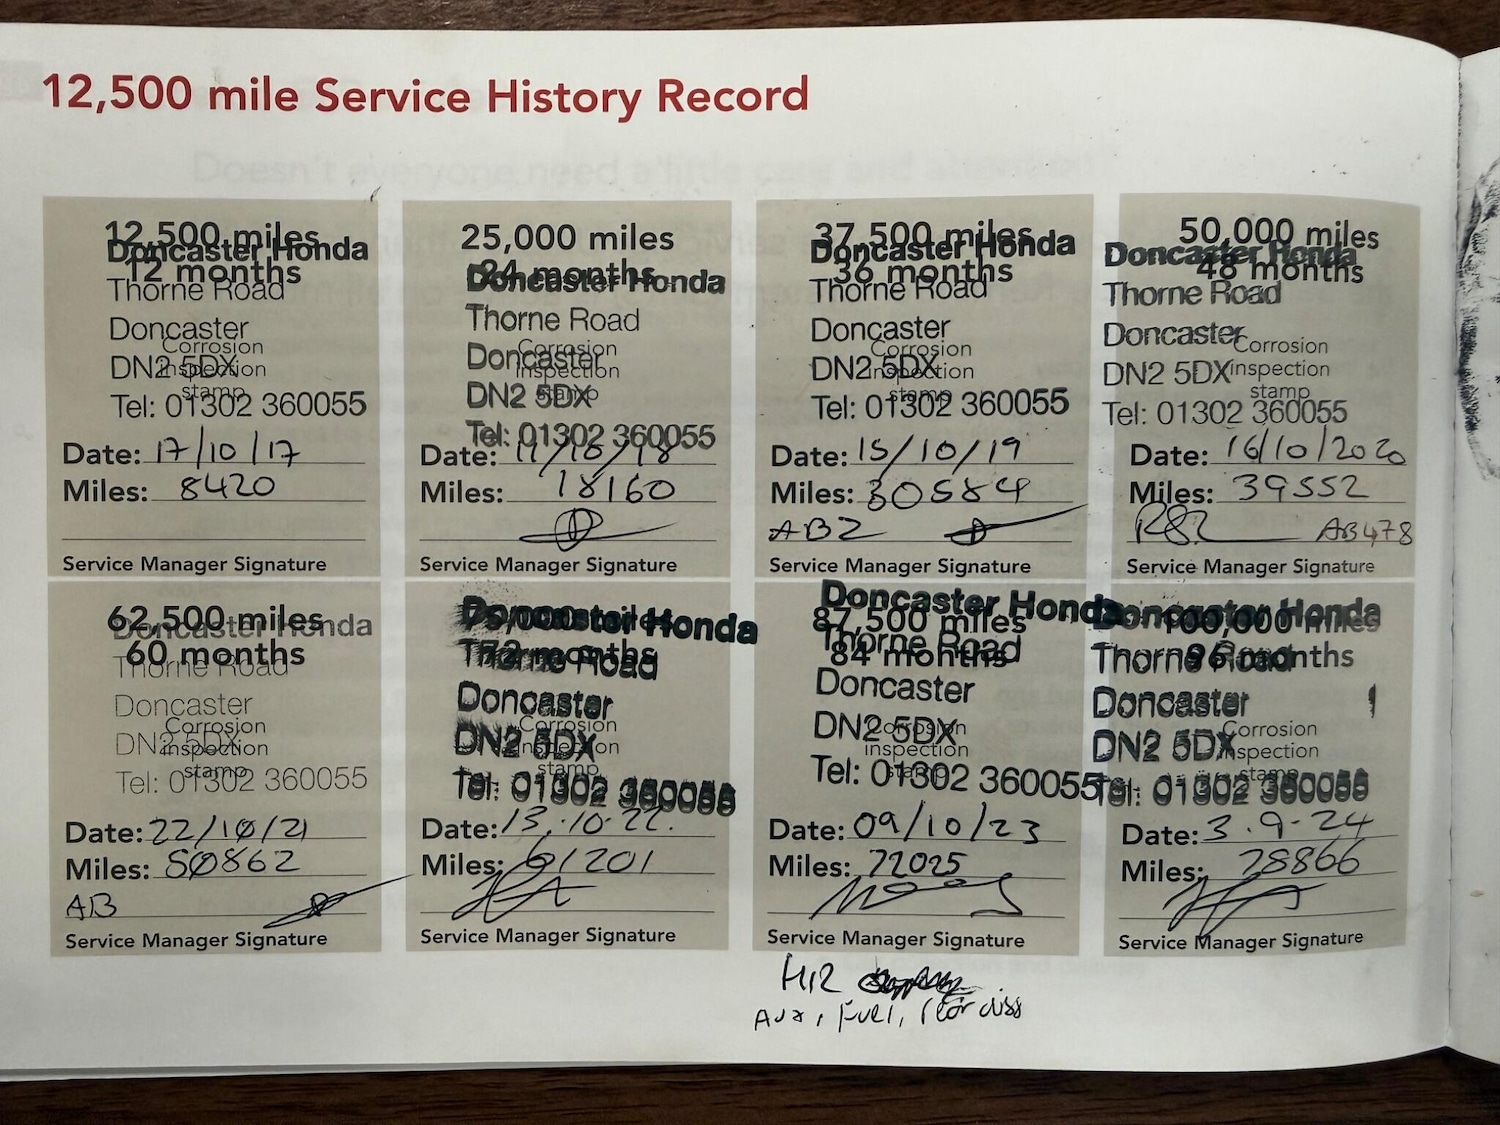 12,500 mile Service History Record
12,500 miles
12 months
Doncaster Honda
Thorne Road
Doncaster
DN2 5DX
Tel: 01302 360055
Corrosion
inspection
stamp
Date: 17/10/17
Miles: 8420
Service Manager Signature
25,000 miles
24 months
Doncaster Honda
Thorne Road
Doncaster
DN2 5DX
Tel: 01302 360055
Corrosion
inspection
stamp
Date:
Miles: 18160
Service Manager Signature
37,500 miles
36 months
Doncaster Honda
Thorne Road
Doncaster
DN2 5DX
Tel: 01302 360055
Corrosion
inspection
stamp
Date: 15/10/19
Miles: 30584
AB2
Service Manager Signature
50,000 miles
48 months
Doncaster Honda
Thorne Road
Doncaster
DN2 5DX
Tel: 01302 360055
Corrosion
inspection
stamp
Date: 16/10/2020
Miles: 39552
AB478
Service Manager Signature
62,500 miles
60 months
Doncaster Honda
Thorne Road
Doncaster
DN2 5DX
Tel: 01302 360055
Corrosion
inspection
stamp
Date: 22/10/21
Miles: 50862
AB
Service Manager Signature
75,000 miles
72 months
Doncaster Honda
Thorne Road
Doncaster
DN2 5DX
Tel: 01302 360055
Corrosion
inspection
stamp
Date: 13.10.22.
Miles: 61201
Service Manager Signature
87,500 miles
84 months
Doncaster Honda
Thorne Road
Doncaster
DN2 5DX
Tel: 01302 360055
Corrosion
inspection
stamp
Date: 09/10/23
Miles: 72025
Service Manager Signature
100,000 miles
96 months
Doncaster Honda
Thorne Road
Doncaster
DN2 5DX
Tel: 01302 360055
Corrosion
inspection
stamp
Date: 3.9.24
Miles: 78866
Service Manager Signature
Aux, Fuel,